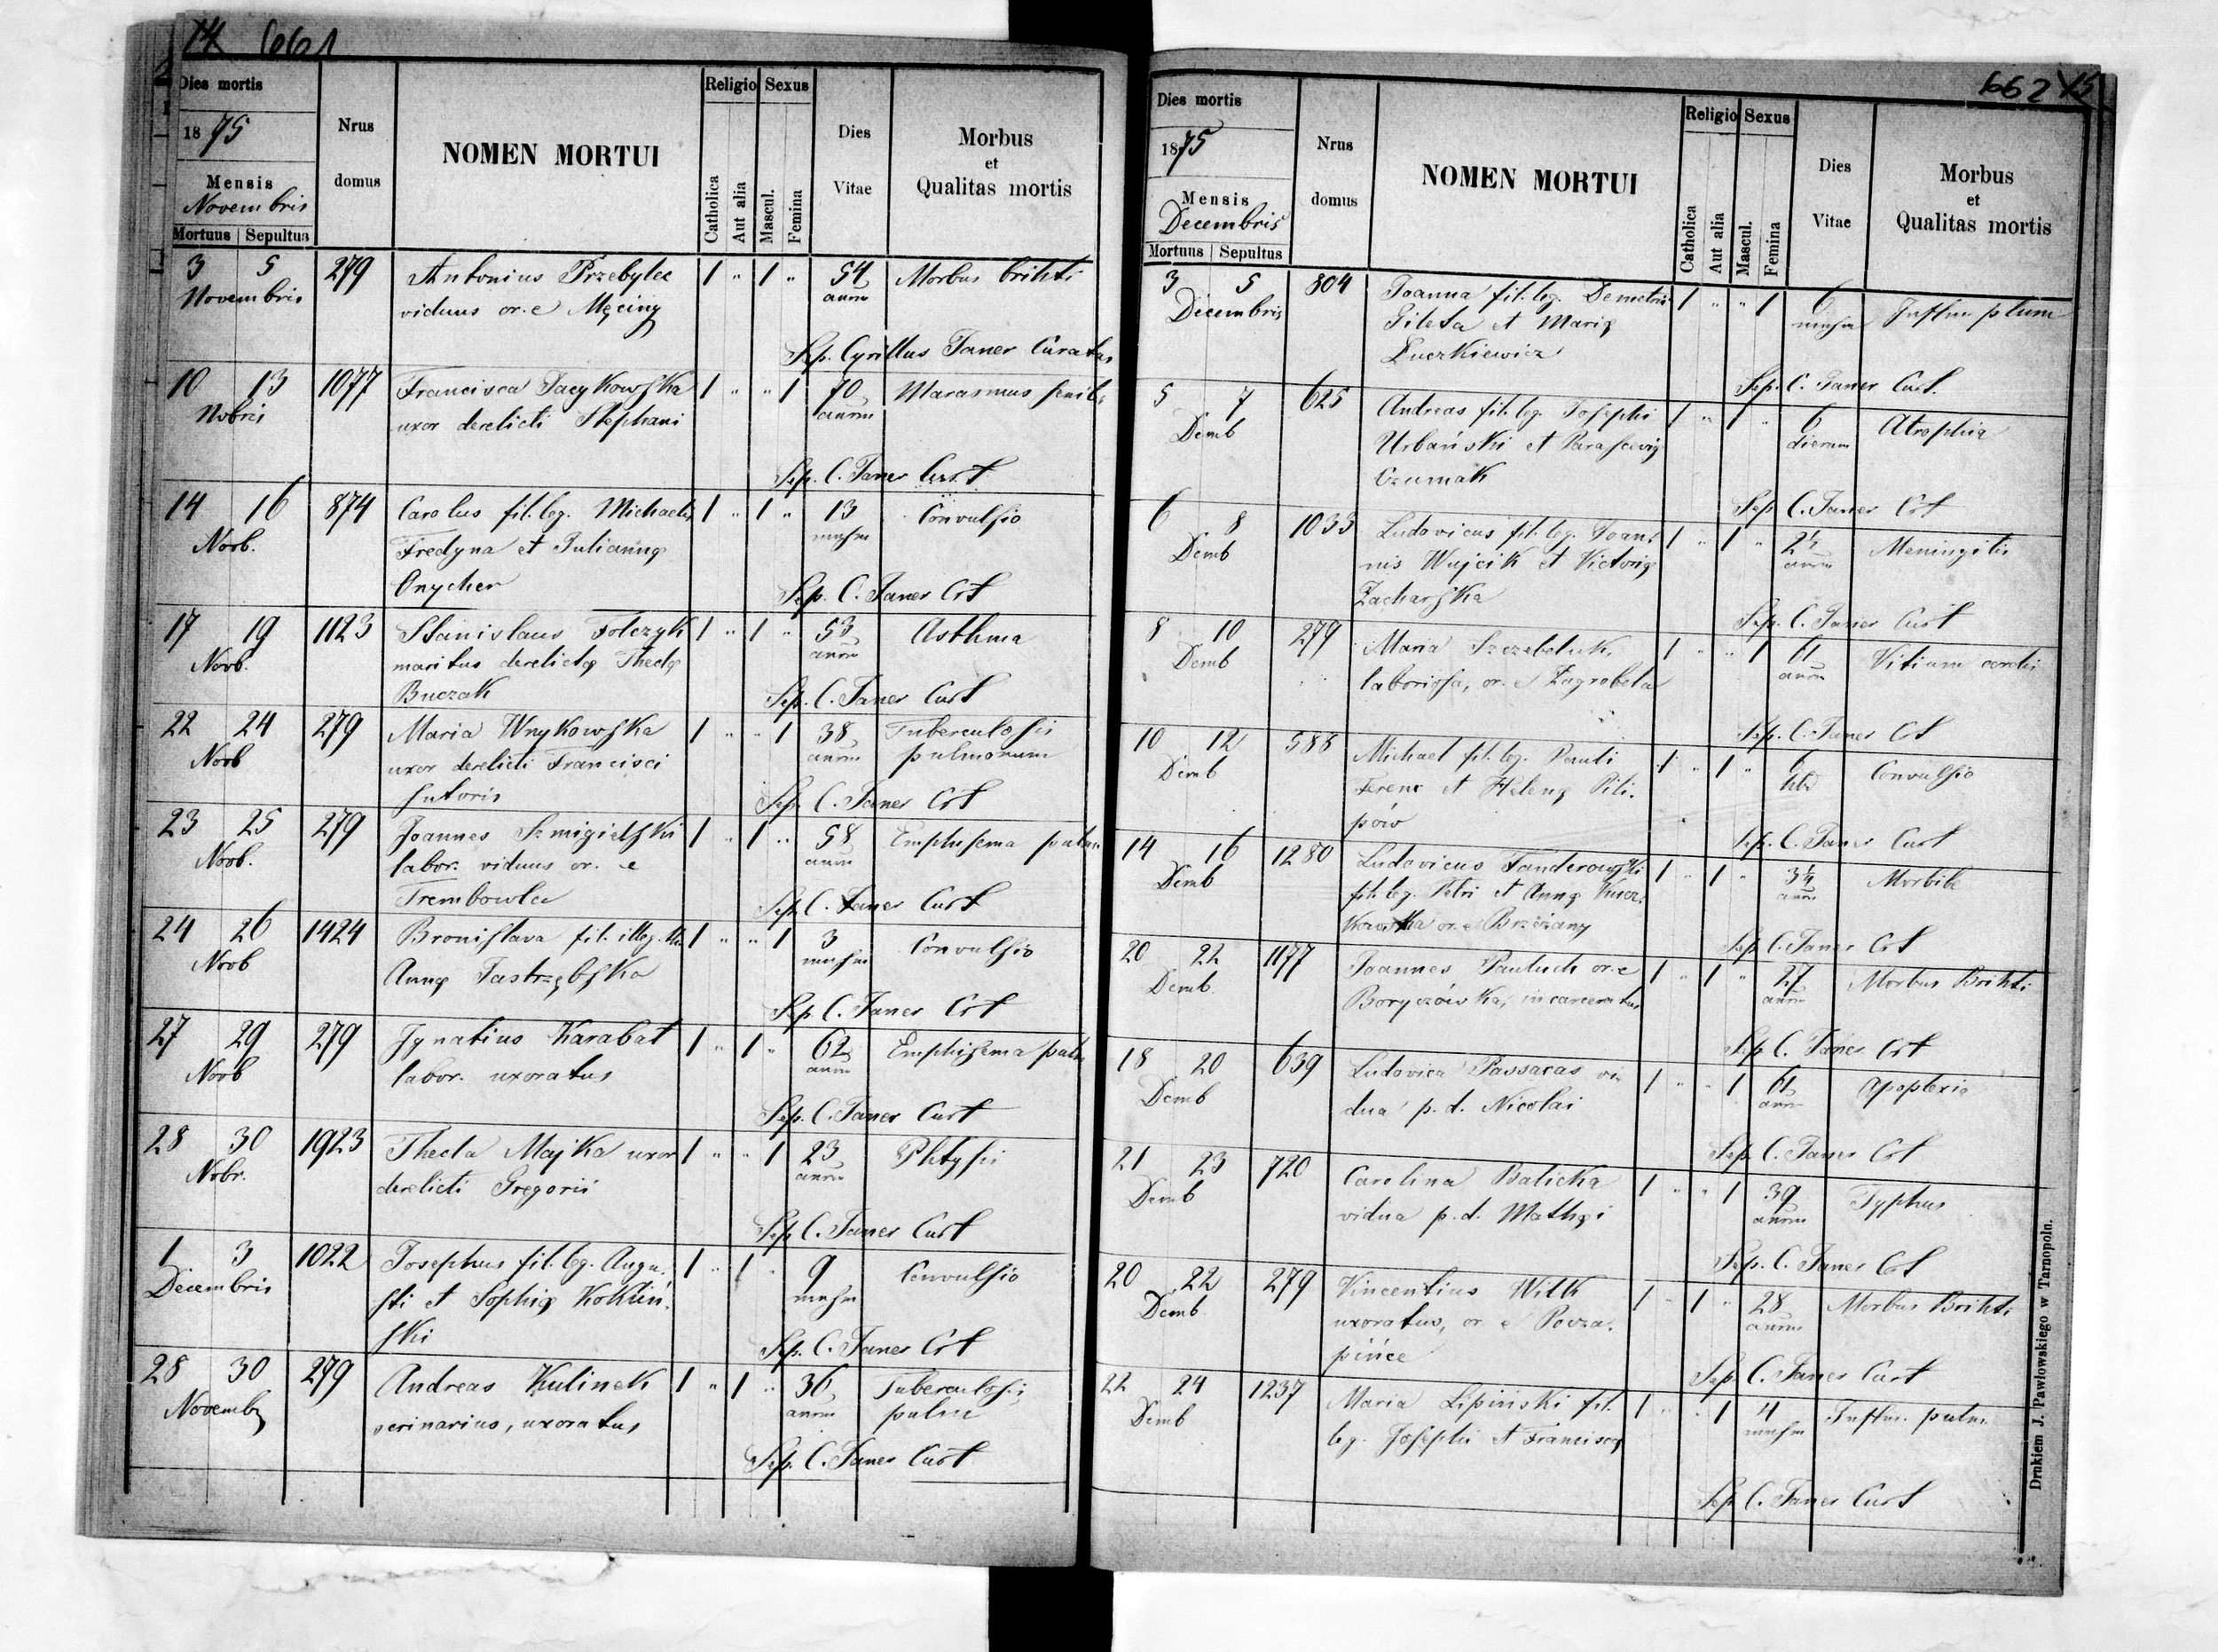 14 661
Dies mortis
1875
Mensis
Novembris
Mortuus | Sepultus
Nrus
domus
NOMEN MORTUI
Religio
Catholica
Aut alia
Sexus
Mascul.
Femina
Dies
Vitae
Morbus
et
Qualitas mortis
3 5 279 Antonius Przebylec 1 " 1 " 54 Morbus brihti
Novembris viduus or. e Męciny annor
Sep. Cyrillus Janer Curatus
10 13 1077 Francisca Jacykowska 1 " " 1 70 Marasmus senil
Nobris uxor derelicti Stephani annor
Sep. C. Janer Curt
14 16 874 Carolus fil. leg. Michaelis 1 " 1 " 13 Convulsio
Novb. Fredyna et Julianną mensm
Onycher
Sep. C. Janer Crt
17 19 1123 Stanislaus Tolczyk 1 " 1 " 53 Asthma
Novb. maritus derelictę Theclę annor
Buczak
Sep. C. Janer Curt
22 24 279 Maria Wnykowska 1 " " 1 38 Tuberculosis
Novb uxor derelicti Francisci annor pulmonum
sutoris
Sep. C. Janer Crt
23 25 279 Joannes Szmigielski 1 " 1 " 58 Emphisema pulm
Novb. labor. viduus or. e annor
Trembowla
Sep. C. Janer Curt
24 26 1424 Bronislava fil. illeg. 1 " " 1 3 Convulsio
Novb Annę Jastrzębska mensm
Sep. C. Janer Crt
27 29 279 Ignatius Karabat 1 " 1 " 62 Emphisema pulm
Novb labor. uxoratus annor
Sep. C. Janer Curt
28 30 1923 Thecla Majka uxor 1 " " 1 23 Phtysis
Nobr. derelicti Gregorii annor
Sep. C. Janer Curt
1 3 1022 Josephus fil. leg. Augu- 1 " 1 " 9 Convulsio
Decembris sti et Sophię Kokuń- mensm
ski
Sep. C. Janer Crt
28 30 279 Andreas Kulinek 1 " 1 " 36 Tuberculosis
Novemb scrinarius, uxoratus annor pulm
Sep. C. Janer Curt
662 15
Dies mortis
1875
Mensis
Decembris
Mortuus | Sepultus
Nrus
domus
NOMEN MORTUI
Religio
Catholica
Aut alia
Sexus
Mascul.
Femina
Dies
Vitae
Morbus
et
Qualitas mortis
3 5 804 Joanna fil. leg. Demetrii 1 " " 1 6 Inflm pulm
Decembris Pileta et Marię mensm
Łuczkiewicz
Sep. C. Janer Curt.
5 7 625 Andreas fil. leg. Josephi 1 " 1 " 6 Atrophia
Demb Urbański et Parascevię dierum
Czumak
Sep C. Janer Crt
6 8 1033 Ludovicus fil. leg. Joan- 1 " 1 " 2½ Meningitis
Demb nis Wujcik et Victorię annor
Zacharska
Sep. C. Janer Curt
8 10 279 Maria Szczebeluk, 1 " " 1 61 Vitium cordis
Demb laboriosa, or. e Zagrobela annor
Sep. C. Janer Crt
10 12 588 Michael fil. leg. Pauli 1 " 1 " 6 Convulsio
Demb Ferenc et Helenę Pili- hbd
pow
Sep. C. Janer Curt
14 16 1280 Ludovicus Tanderowski 1 " 1 " 3¼ Morbili
Demb fil. leg. Petri et Annę Kucz- annor
kowska or. e Brzeżany
Sep C. Janer Crt
20 22 1177 Joannes Pauluch or. e 1 " 1 " 27 Morbus Brihti
Demb. Boryczówka, incarceratus annor
Sep C. Janer Crt
18 20 639 Ludovica Passacas vi- 1 " " 1 61 Apoplexia
Demb dua p. d. Nicolai annor
Sep. C. Janer Crt
21 23 720 Carolina Balicka 1 " " 1 39 Typhus
Demb vidua p. d. Mathęi annor
Sep. C. Janer Crt
20 22 279 Vincentius Wilk 1 " 1 " 28 Morbus Brihti
Demb. uxoratus, or. e Povza- annor
pińce
Sep C. Janer Curt
22 24 1237 Maria Lipiński fil. 1 " " 1 4 Inflm. pulm.
Demb leg. Josephi et Franciscę mensm
Sep C. Janer Curt
Drukiem J. Pawłowskiego w Tarnopolu.